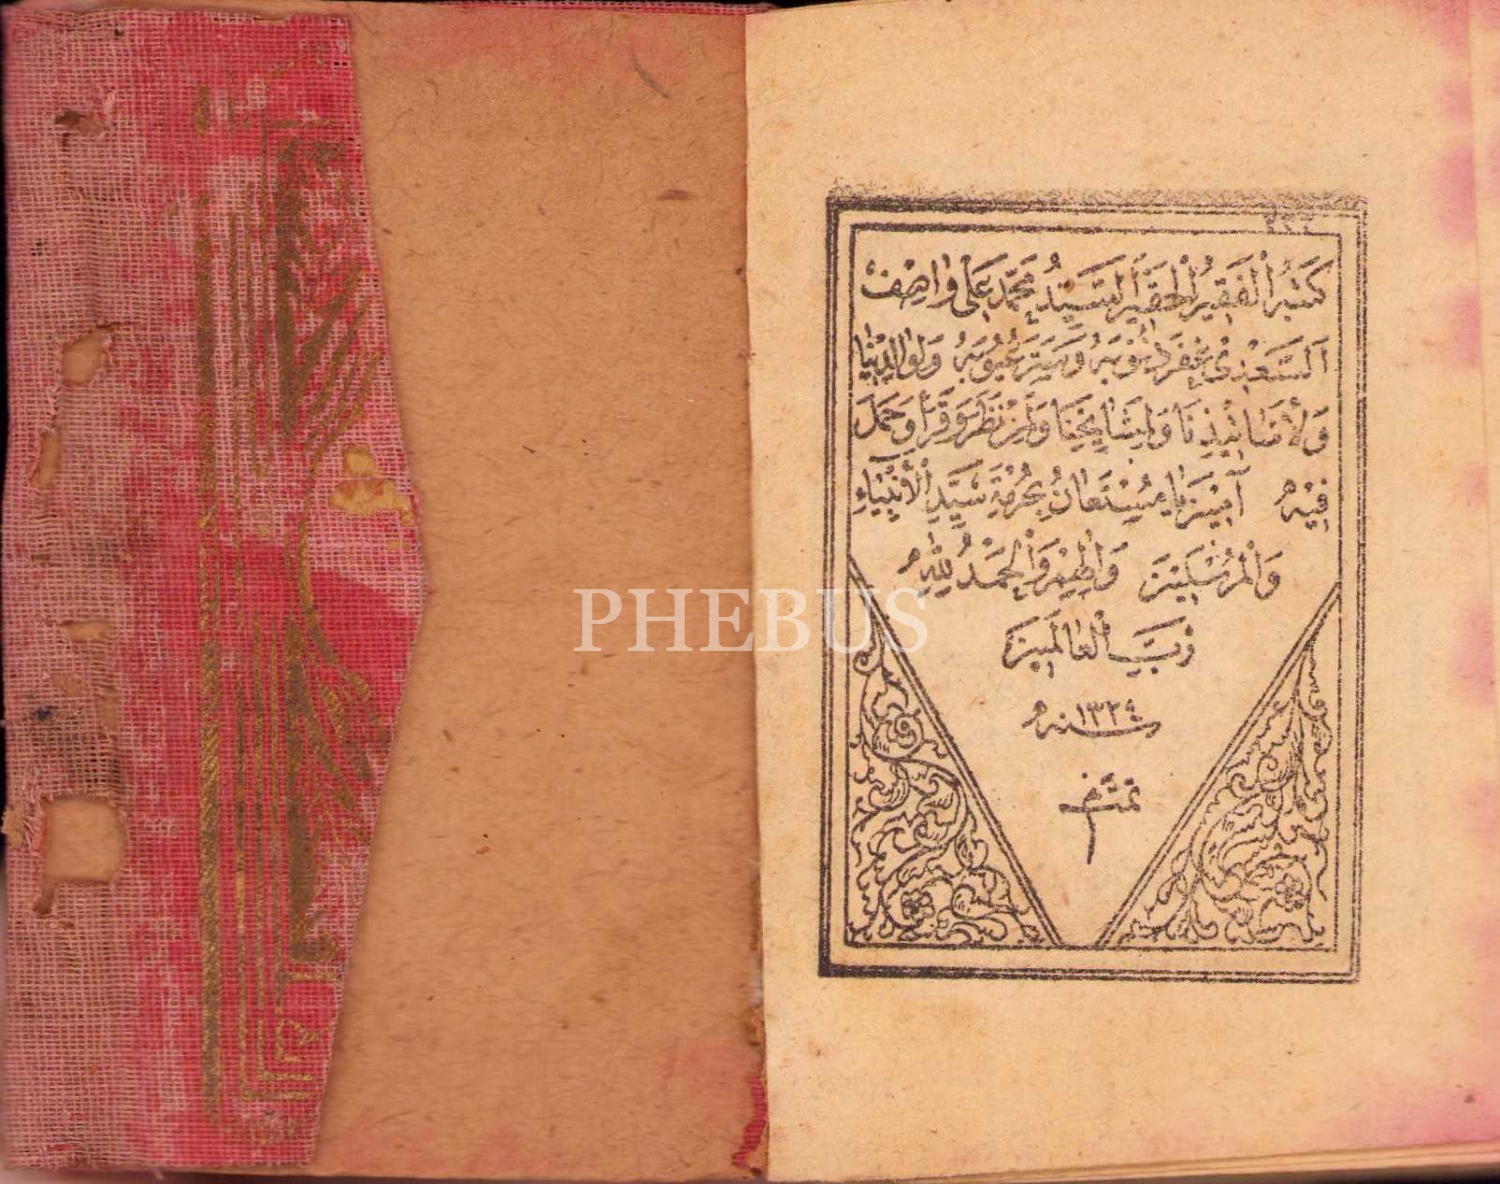 كَتَبَهُ الْفَقِيرُ الْحَقِيرُ السَّيِّدُ مُحَمَّد عَلِى وَاصِف
اَلسَّعْدِى غُفِرَ ذُنُوبَهُ وَسَتَرَ عُيُوبَهُ وَلِوَالِدَيْنَا
وَلِأَسَاتِيذِنَا وَلِمَشَايِخِنَا وَلِمَنْ نَظَرَ وَقَرَأَ وَحَمَلَ
فِيهِ آمِينَ يَا مُسْتَعَانُ بِحُرْمَةِ سَيِّدِ الْأَنْبِيَاءِ
وَالْمُرْسَلِينَ وَالْحَمْدُ لِلّٰهِ
رَبِّ الْعَالَمِينَ
سنه ١٣٢٤
تمت م
PHEBUS